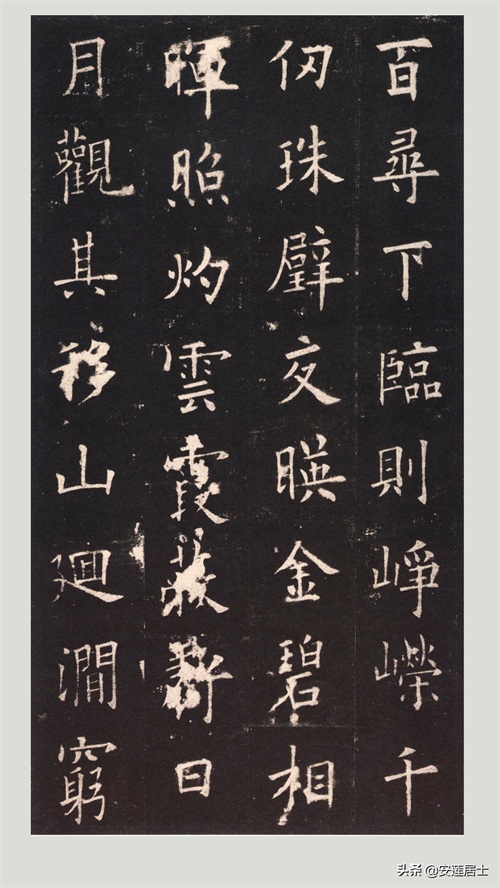 百尋下臨則崢嶸千
仞珠璧交暎金碧相
暉照灼雲霞蔽虧日
月觀其移山廻澗窮
头条 @安莲居士